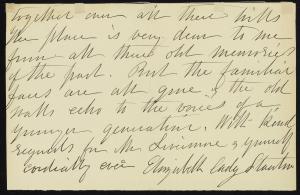 together over all these hills
The place is very dear to me
from all these old memories
of the past. But the familiar
faces are all gone & the old
walls echo to the voices of a
younger generation. With kind
regards for Mr & yourself
Cordially ever Elizabeth Cady Stanton